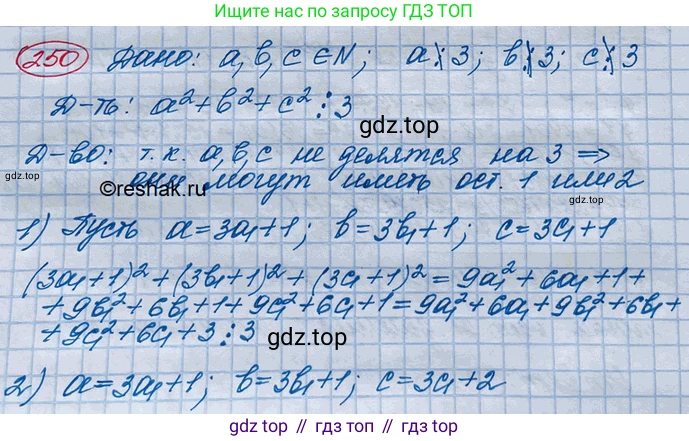 Ищите нас по запросу ГДЗ ТОП
250 Дано: a, b, c ∈ N; a⋮̸3; b⋮̸3; c⋮̸3
Д-ть: a²+b²+c²⋮3
gdz.top
Д-во: т.к. a, b, c не делятся на 3 ⇒
gdz.top
gdz.top
они могут иметь ост. 1 или 2
©reshak.ru
1) Пусть a=3a₁+1; b=3b₁+1; c=3c₁+1
(3a₁+1)²+(3b₁+1)²+(3c₁+1)²=9a₁²+6a₁+1+
+9b₁²+6b₁+1+9c₁²+6c₁+1=9a₁²+6a₁+9b₁²+6b₁+
+9c₁²+6c₁+3⋮3
gdz.top
2) a=3a₁+1; b=3b₁+1; c=3c₁+2
gdz.top // gdz.top // gdz.top